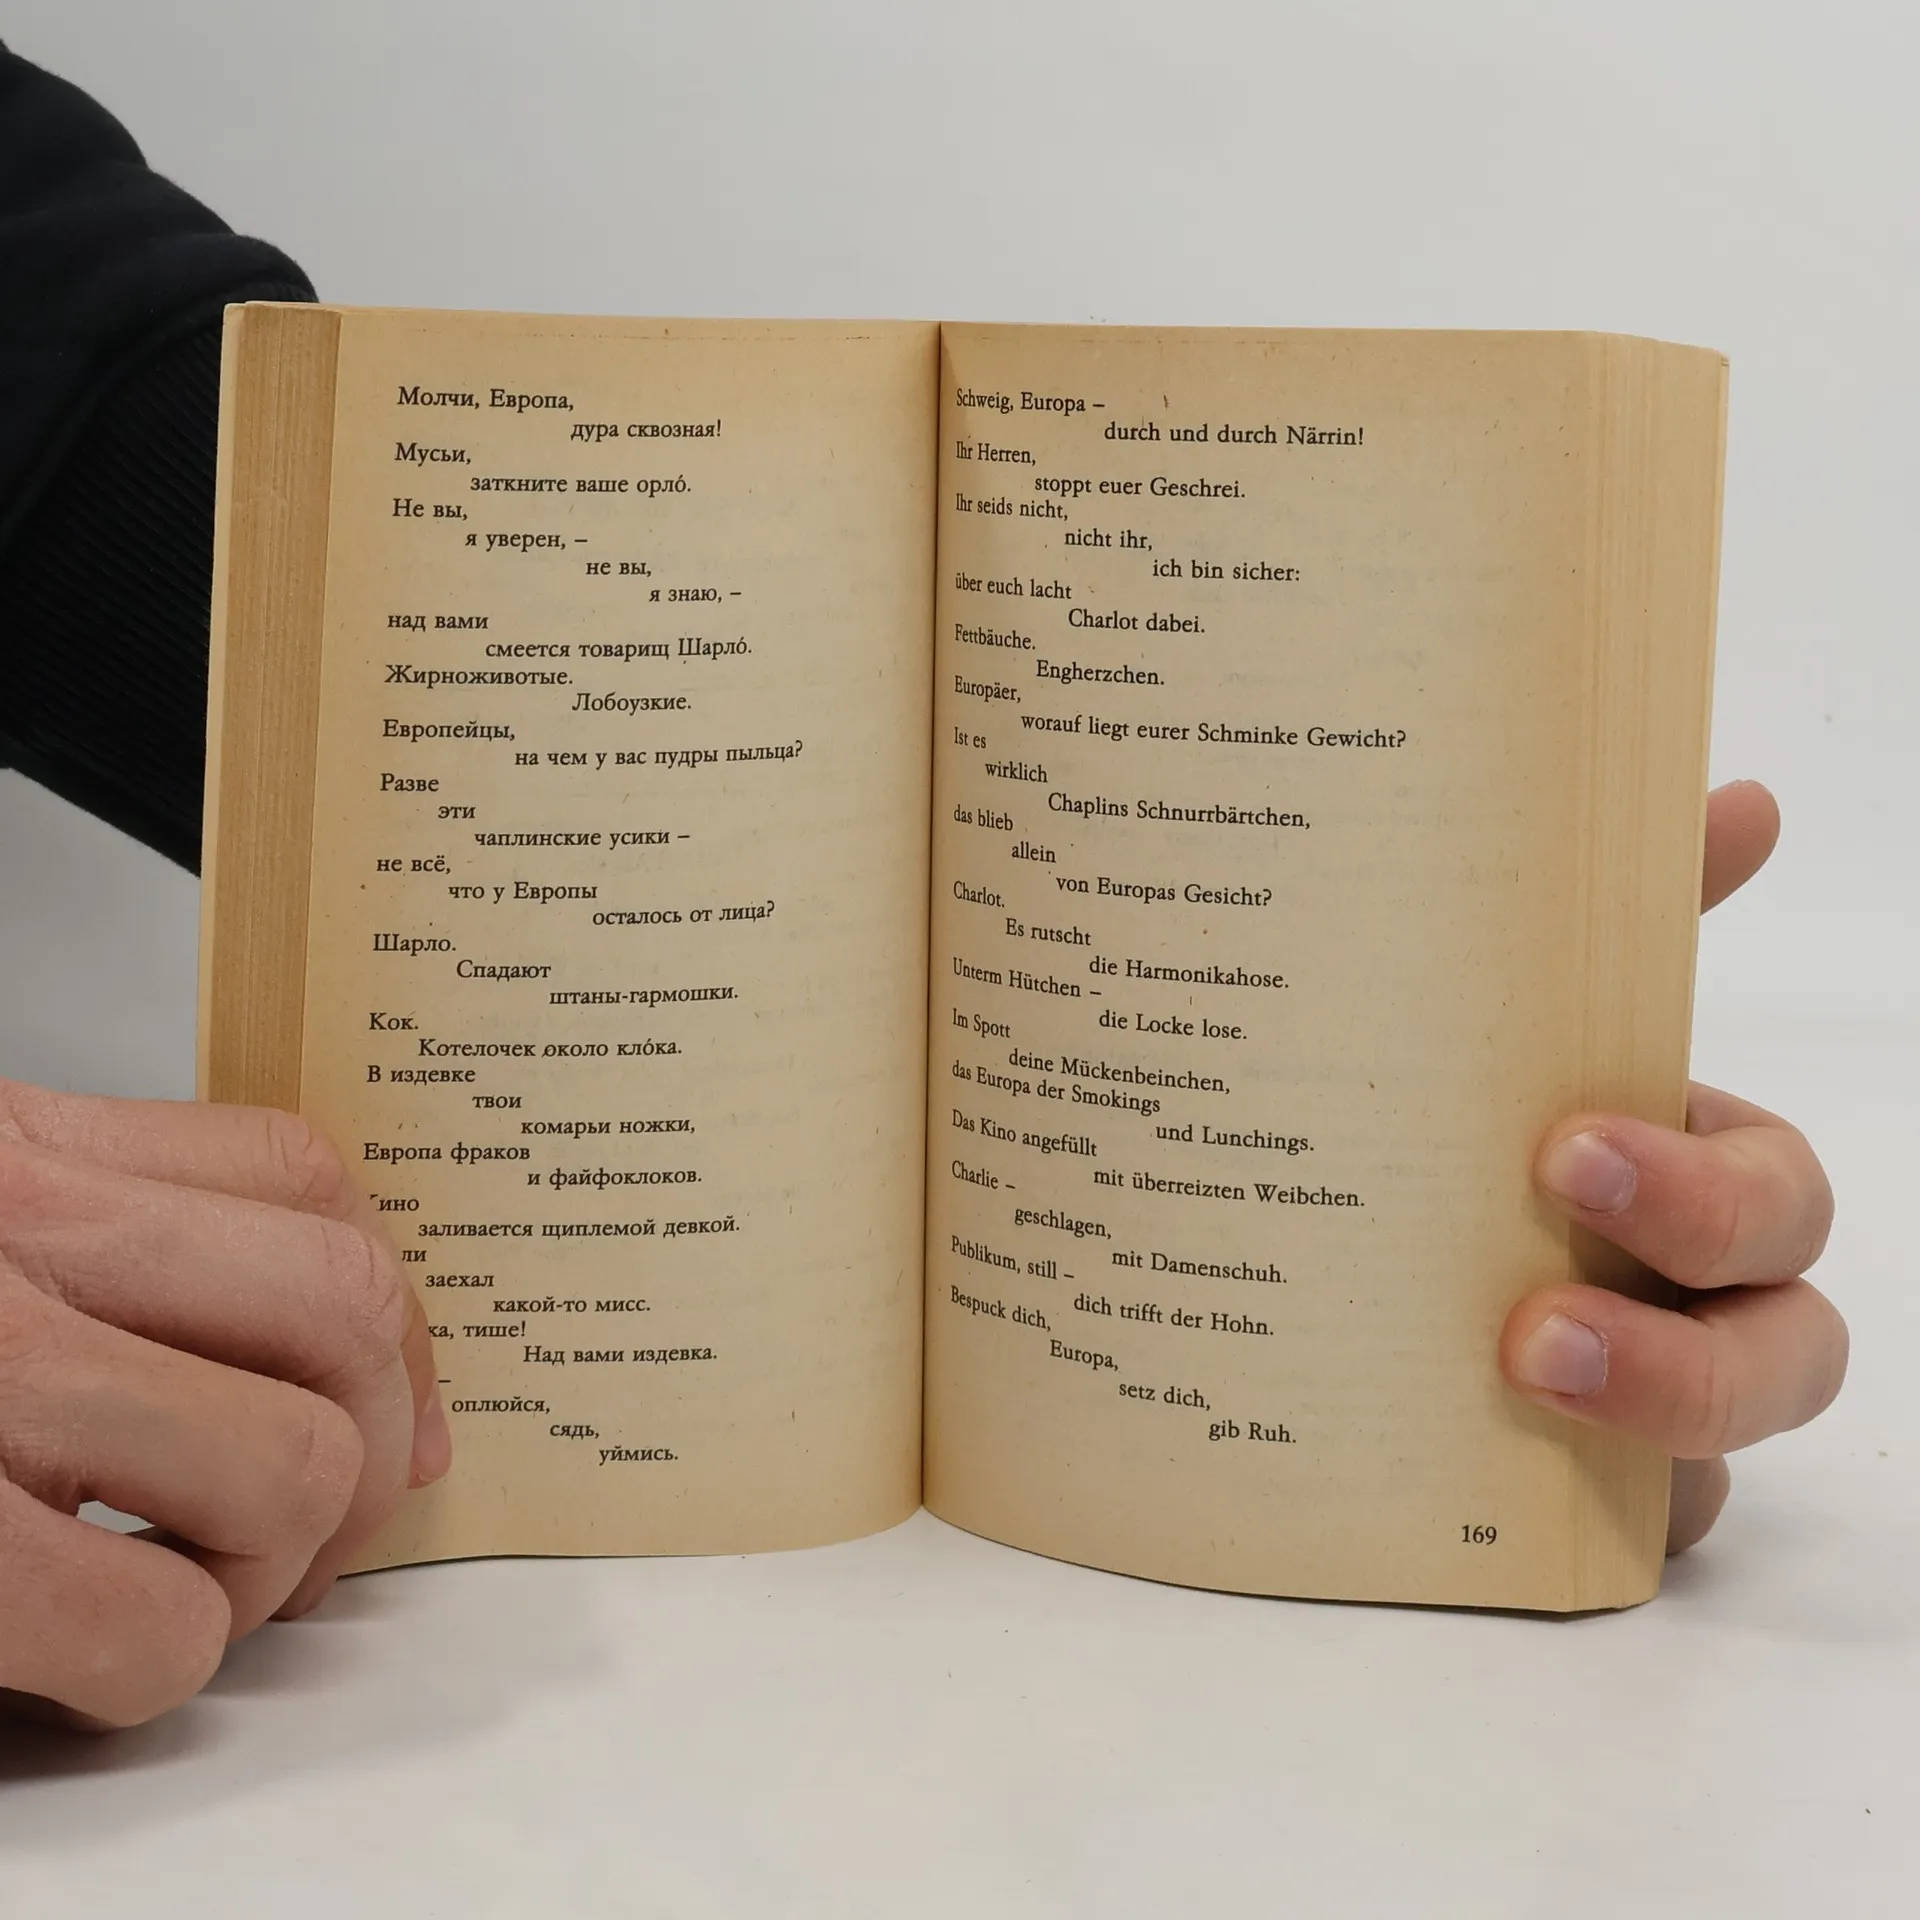 Молчи, Европа,
дура сквозная!
Мусьи,
заткните ваше орло́.
Не вы,
я уверен, –
не вы,
я знаю, –
над вами
смеется товарищ Шарло́.
Жирноживотые.
Лобоузкие.
Европейцы,
на чем у вас пудры пыльца?
Разве
эти
чаплинские усики –
не всё,
что у Европы
осталось от лица?
Шарло.
Спадают
штаны-гармошки.
Кок.
Котелочек около кло́ка.
В издевке
твои
комарьи ножки,
Европа фраков
и файфоклоков.
заливается щиплемой девкой.
заехал
какой-то мисс.
тише!
Над вами издевка.
–
оплюйся,
сядь,
уймись.
Schweig, Europa –
durch und durch Närrin!
Ihr Herren,
stoppt euer Geschrei.
Ihr seids nicht,
nicht ihr,
ich bin sicher:
über euch lacht
Charlot dabei.
Fettbäuche.
Engherzchen.
Europäer,
worauf liegt eurer Schminke Gewicht?
Ist es
wirklich
Chaplins Schnurrbärtchen,
das blieb
allein
von Europas Gesicht?
Charlot.
Es rutscht
die Harmonikahose.
Unterm Hütchen –
die Locke lose.
Im Spott
deine Mückenbeinchen,
das Europa der Smokings
und Lunchings.
Das Kino angefüllt
mit überreizten Weibchen.
Charlie –
geschlagen,
mit Damenschuh.
Publikum, still –
dich trifft der Hohn.
Bespuck dich,
Europa,
setz dich,
gib Ruh.
169